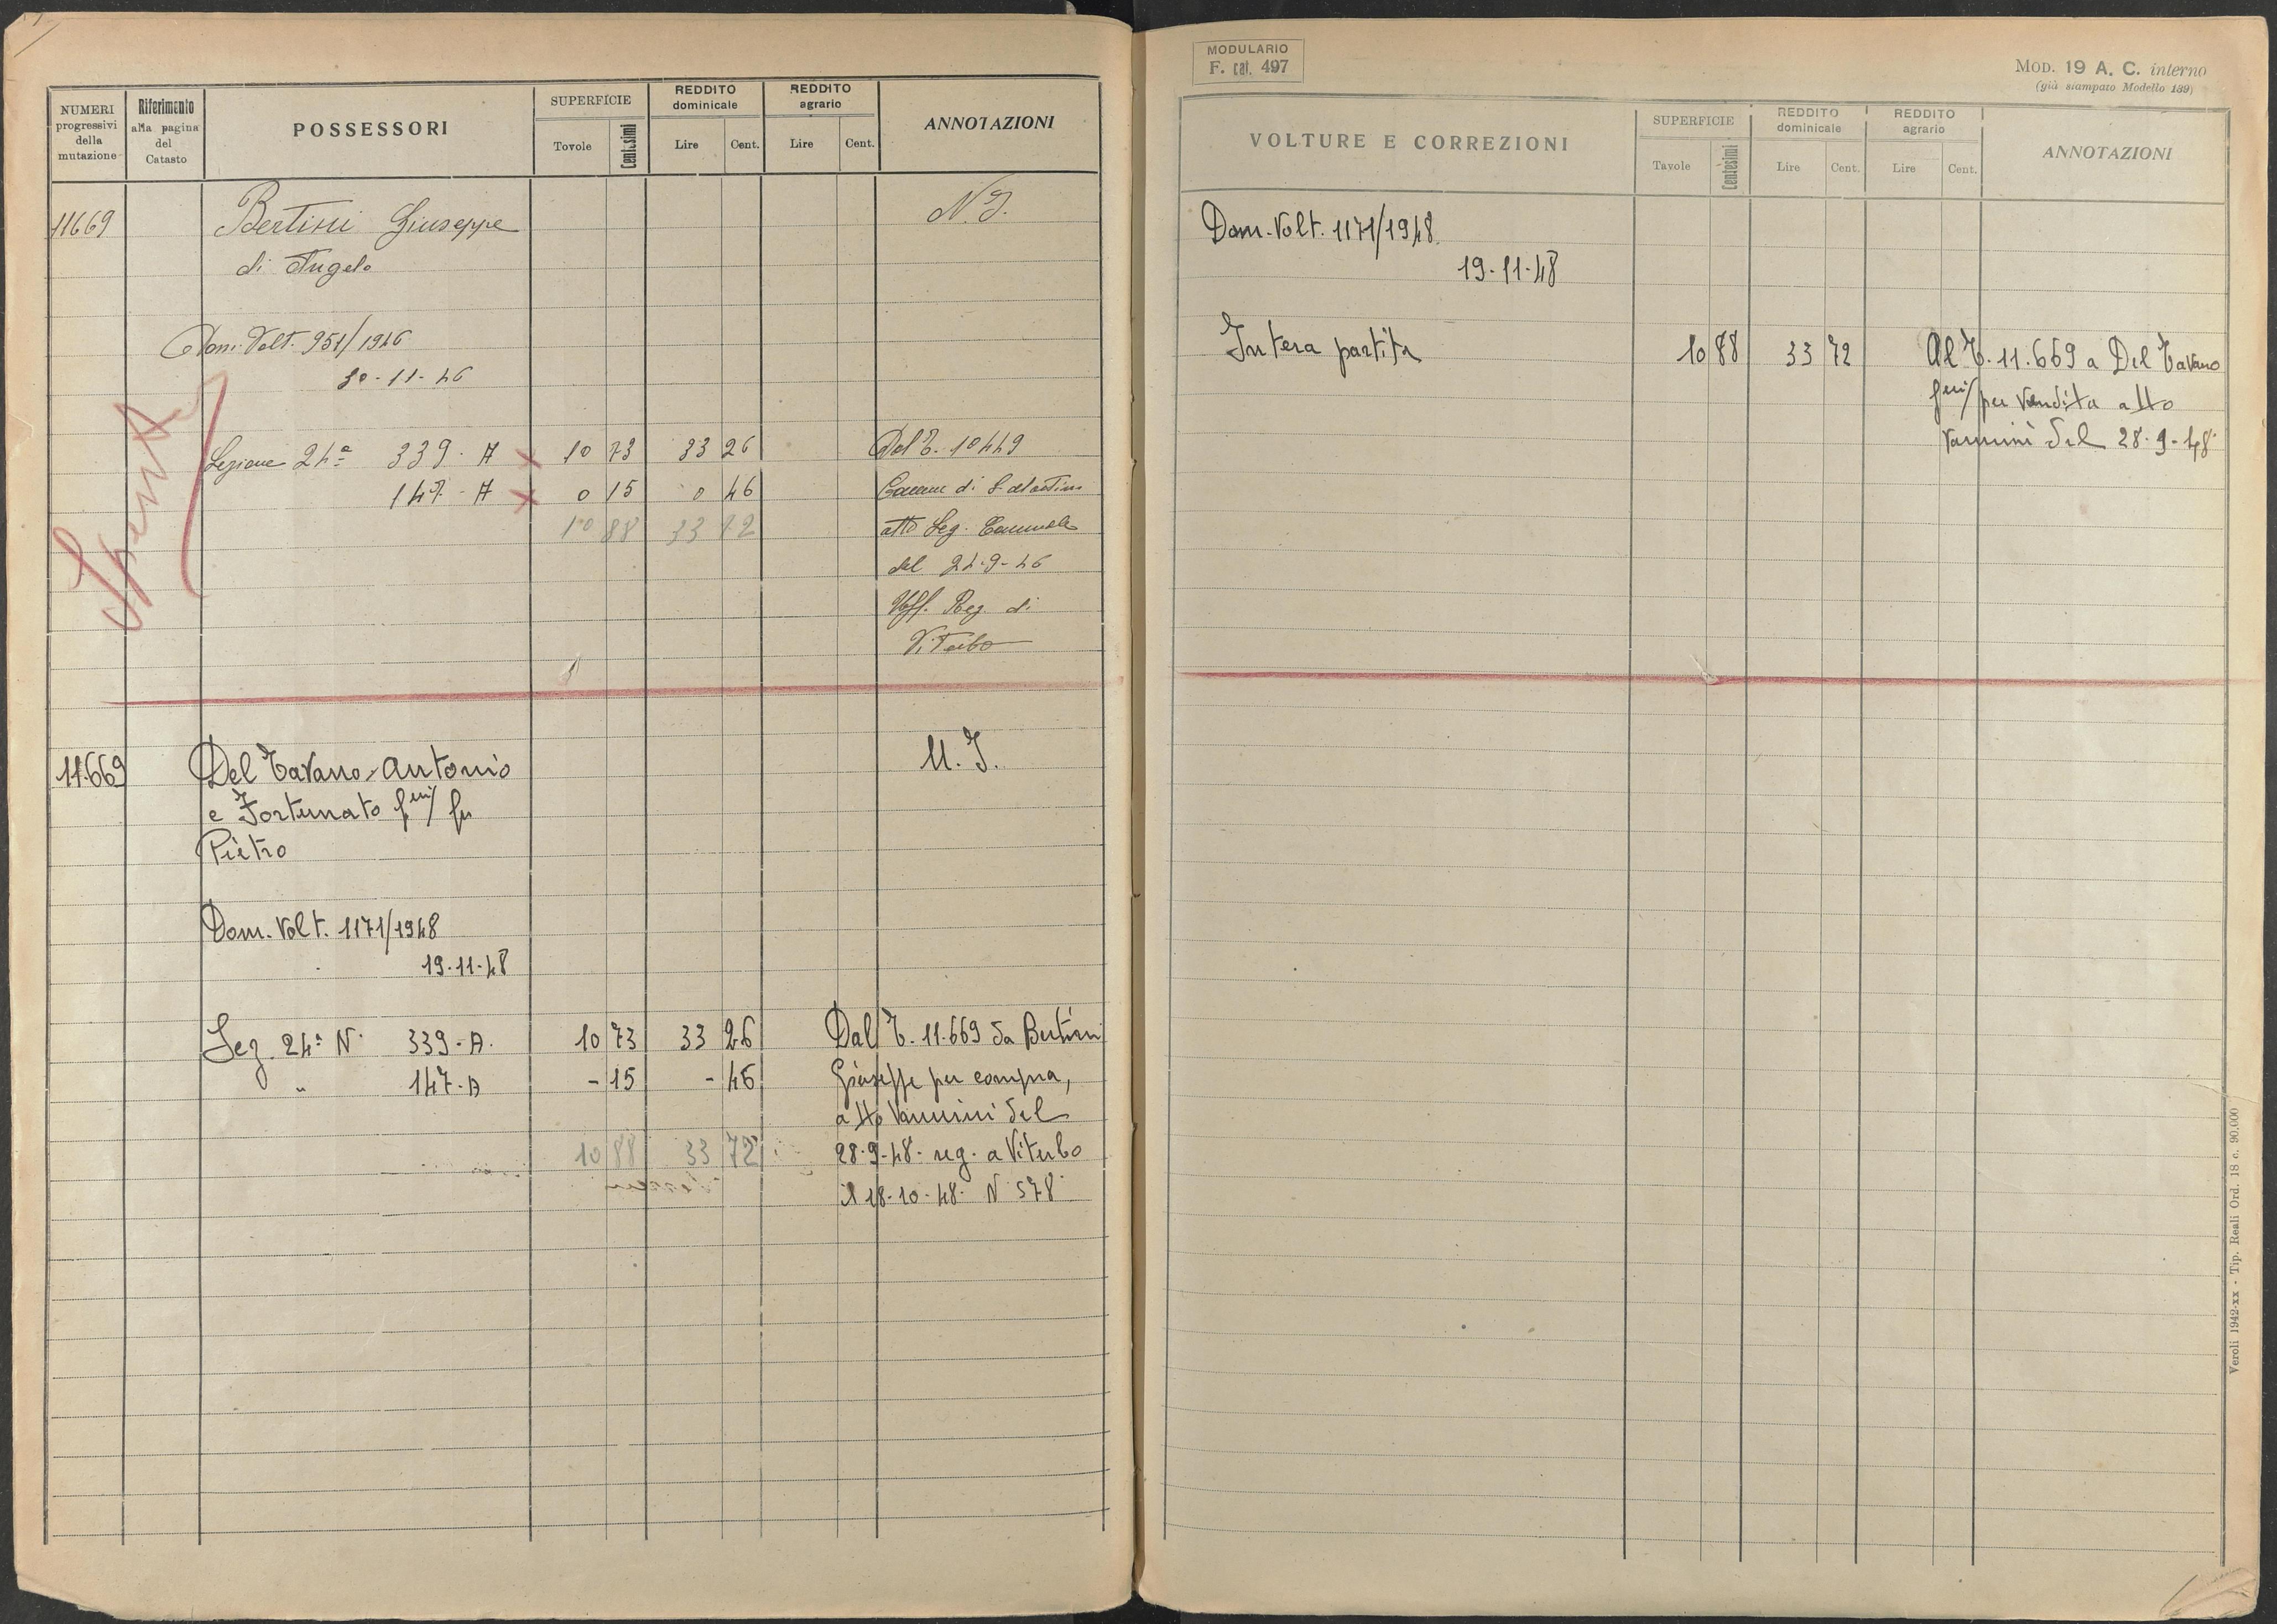 NUMERI progressivi della mutazione
Riferimento alla pagina del Catasto
POSSESSORI
SUPERFICIE
Tovole
Centesimi
REDDITO dominicale
Lire
Cent.
REDDITO agrario
Lire
Cent.
ANNOTAZIONI
11669
Bertini Giuseppe
N.I.
di Angelo
Dom. Volt. 951/1946
30-11-46
Spenta
Sezione 24ª 339-A x 10 73 33 26 Dal T. 10449
147-A x 0 15 0 46 Comune di S. Martino
10 88 33 72 atto Seg. Comunale
del 24-9-46
Uff. Reg. di
Viterbo
11.669
Del Tavano Antonio
e Fortunato fni/ fu
Pietro
Dom. Volt. 1171/1948
19-11-48
Sez. 24ª N. 339-A. 10 73 33 26 Dal T. 11.669 da Bertini
" 147-A - 15 - 46 Giuseppe per compra,
atto Vannini del
10 88 33 72 28-9-48- reg. a Viterbo
il 18-10-48. N 578
MODULARIO
F. cat. 497
MOD. 19 A. C. interno
(già stampato Modello 139)
VOLTURE E CORREZIONI
SUPERFICIE
Tavole
Centèsimi
REDDITO dominicale
Lire
Cent.
REDDITO agrario
Lire
Cent.
ANNOTAZIONI
Dom. Volt. 1171/1948.
19-11-48
Intera partita 10 88 33 72 Al T. 11.669 a Del Tavano
fni/ per vendita atto
Vannini del 28-9-48
Veroli 1942-XX - Tip. Reali Ord. 18 c. 90.000